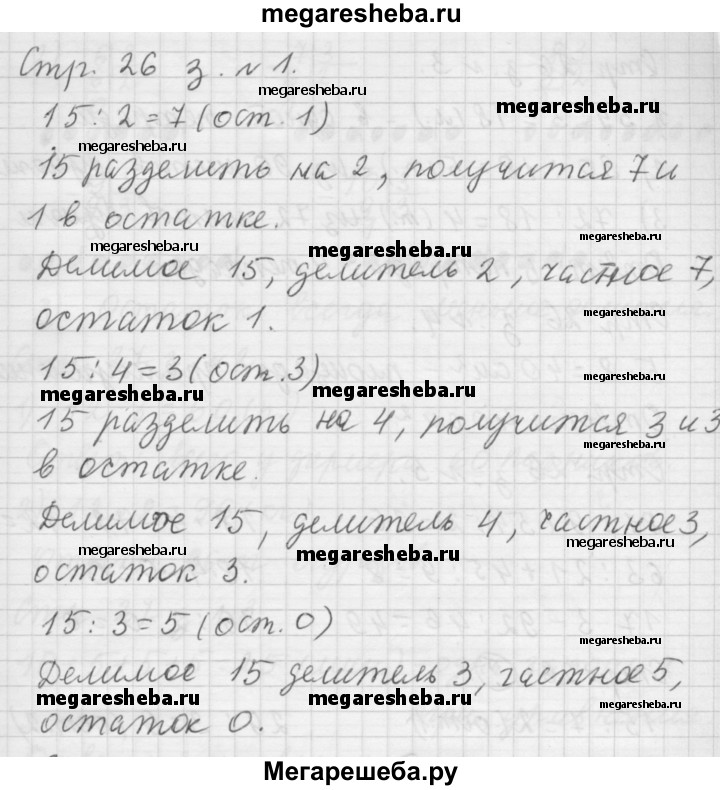 megaresheba.ru
Стр. 26 з. №1.
megaresheba.ru
15 : 2 = 7 (ост. 1)
megaresheba.ru
megaresheba.ru
15 разделить на 2, получится 7 и
megaresheba.ru
1 в остатке.
megaresheba.ru
megaresheba.ru
megaresheba.ru
Делимое 15, делитель 2, частное 7,
megaresheba.ru
остаток 1.
15 : 4 = 3 (ост. 3)
megaresheba.ru
megaresheba.ru
megaresheba.ru
15 разделить на 4, получится 3 и 3
megaresheba.ru
в остатке.
Делимое 15, делитель 4, частное 3,
megaresheba.ru
megaresheba.ru
megaresheba.ru
остаток 3.
15 : 3 = 5 (ост. 0)
megaresheba.ru
Делимое 15 делитель 3, частное 5,
megaresheba.ru
megaresheba.ru
megaresheba.ru
остаток 0.
Мегарешеба.ру